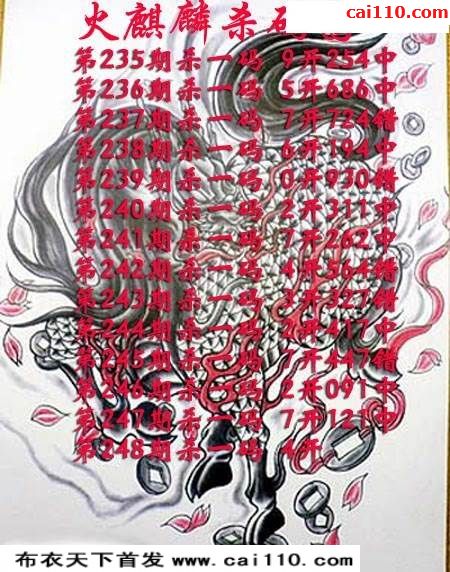 cai110.com
火麒麟杀码
第235期杀一码 9开254中
第236期杀一码 5开686中
第237期杀一码 7开724错
第238期杀一码 6开194中
第239期杀一码 0开930错
第240期杀一码 2开311中
第241期杀一码 7开262中
第242期杀一码 4开564错
第243期杀一码 3开327错
第244期杀一码 2开417中
第245期杀一码 7开447错
第246期杀一码 2开091中
第247期杀一码 7开121中
第248期杀一码 4开
布衣天下首发 www.cai110.com